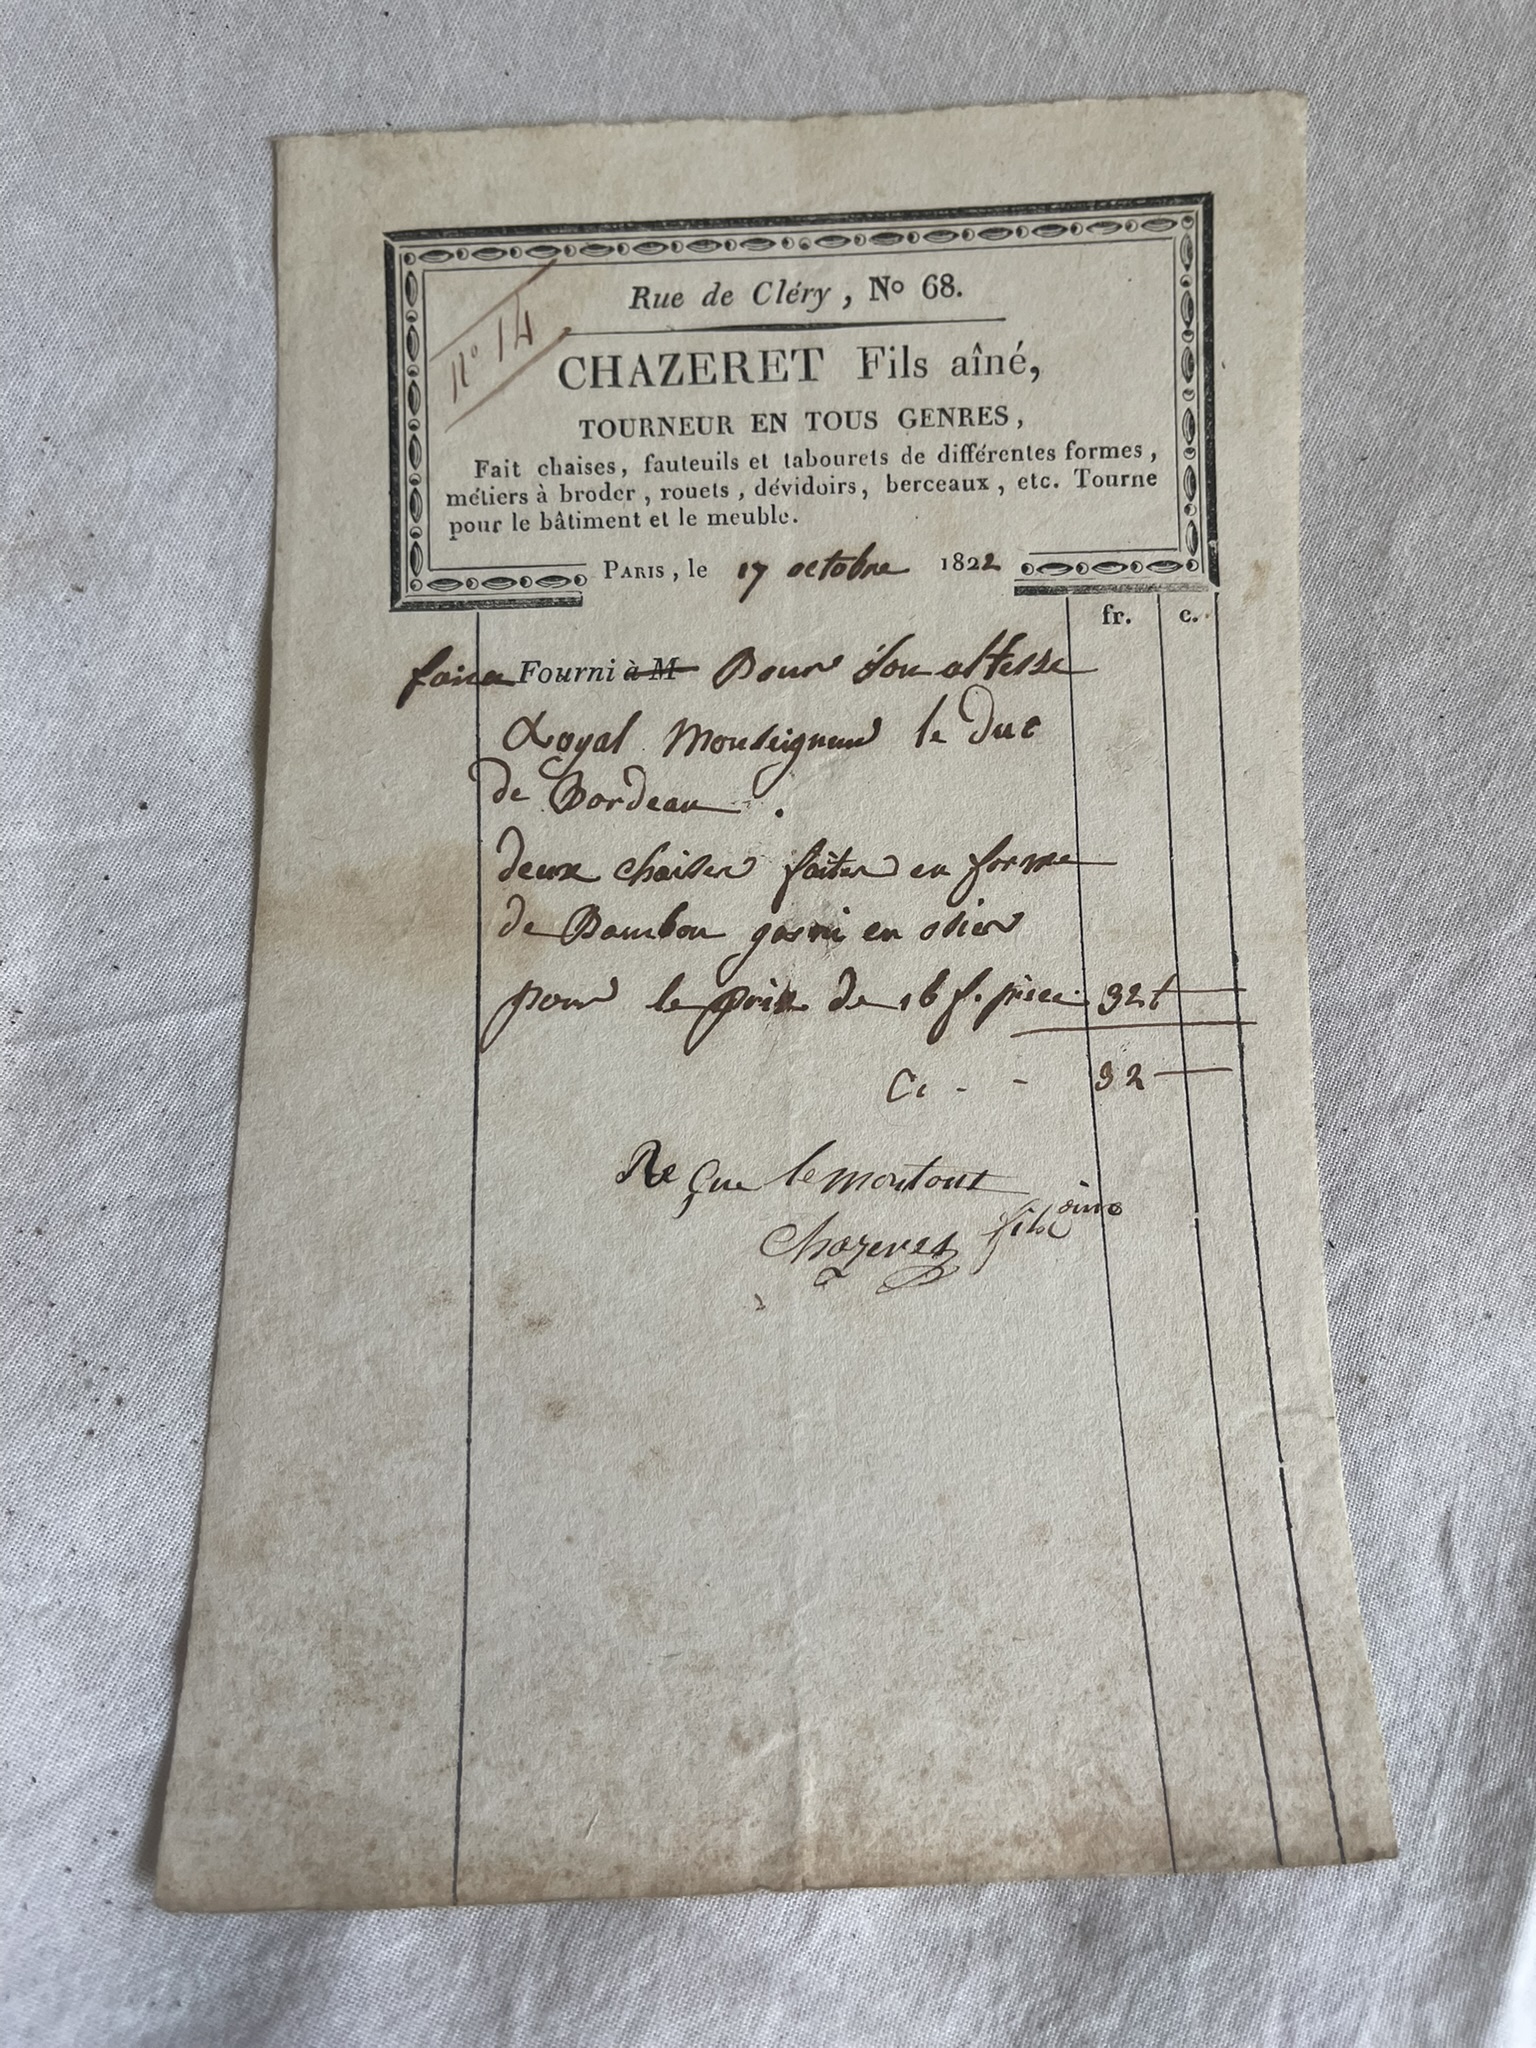 Rue de Cléry, No 68.
No 14
CHAZERET Fils aîné,
TOURNEUR EN TOUS GENRES,
Fait chaises, fauteuils et tabourets de différentes formes,
métiers à broder, rouets, dévidoirs, berceaux, etc. Tourne
pour le bâtiment et le meuble.
PARIS, le 17 octobre 1822
fr. c.
Fourni à M Pour Son altesse
Royal Monseigneur le Duc
de Bordeau.
deux chaises faites en forme
de Bambou garni en osier
pour le prix de 16 f. pièce 32 f
Ci - - 32
Re çue le montant
Chazeret fils aine